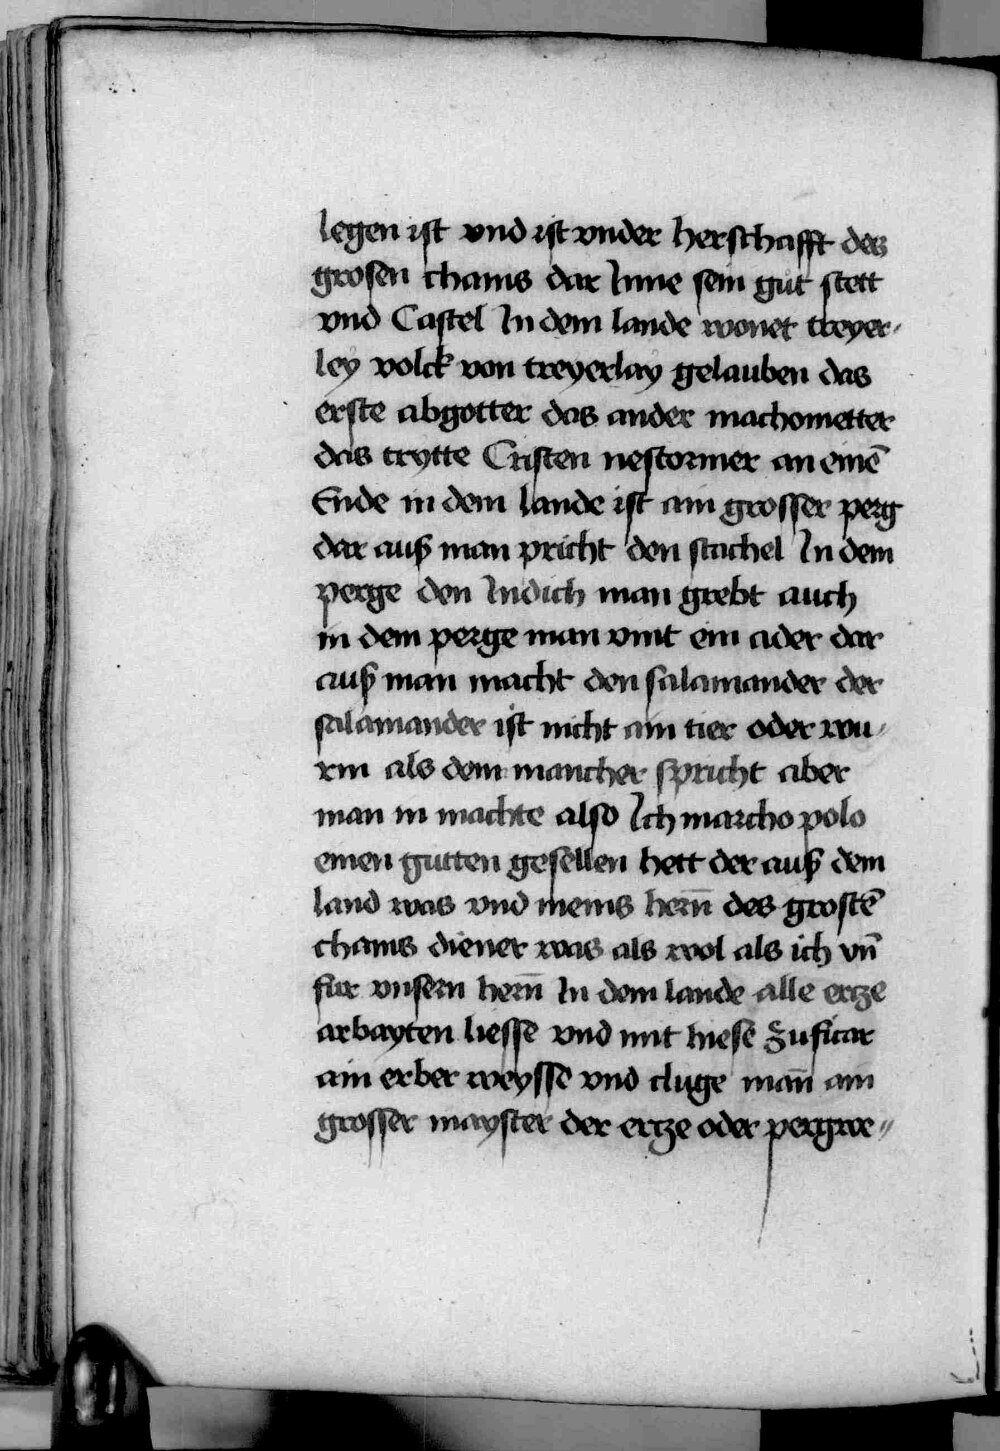 legen ist vnd ist vnder herschafft des
grosen chams dar Inne sein gut stett
vnd Castel In dem lande wonet treyer-
ley volck von treyerlay gelauben das
erste abgotter das ander machometter
das trytte Cristen nestormer an einē
Ende in dem lande ist ain grosser perg
dar auß man pricht den stachel In dem
perge den Indich man grebt auch
in dem perge man vint ein ader dar
auß man macht den salamander der
salamander ist nicht ain tier oder wu-
rm als dem mancher spricht aber
man in machte also Ich marcho polo
einen gutten gesellen hett der auß dem
land was vnd meins hern̄ des grostē
chams diener was als wol als ich vn̄
fur vnsern hern̄ In dem lande alle ercze
arbayten liesse vnd mit hiese Zuficar
ain erber weysse vnd cluge man̄ ain
grosser mayster der ercze oder pergwe-